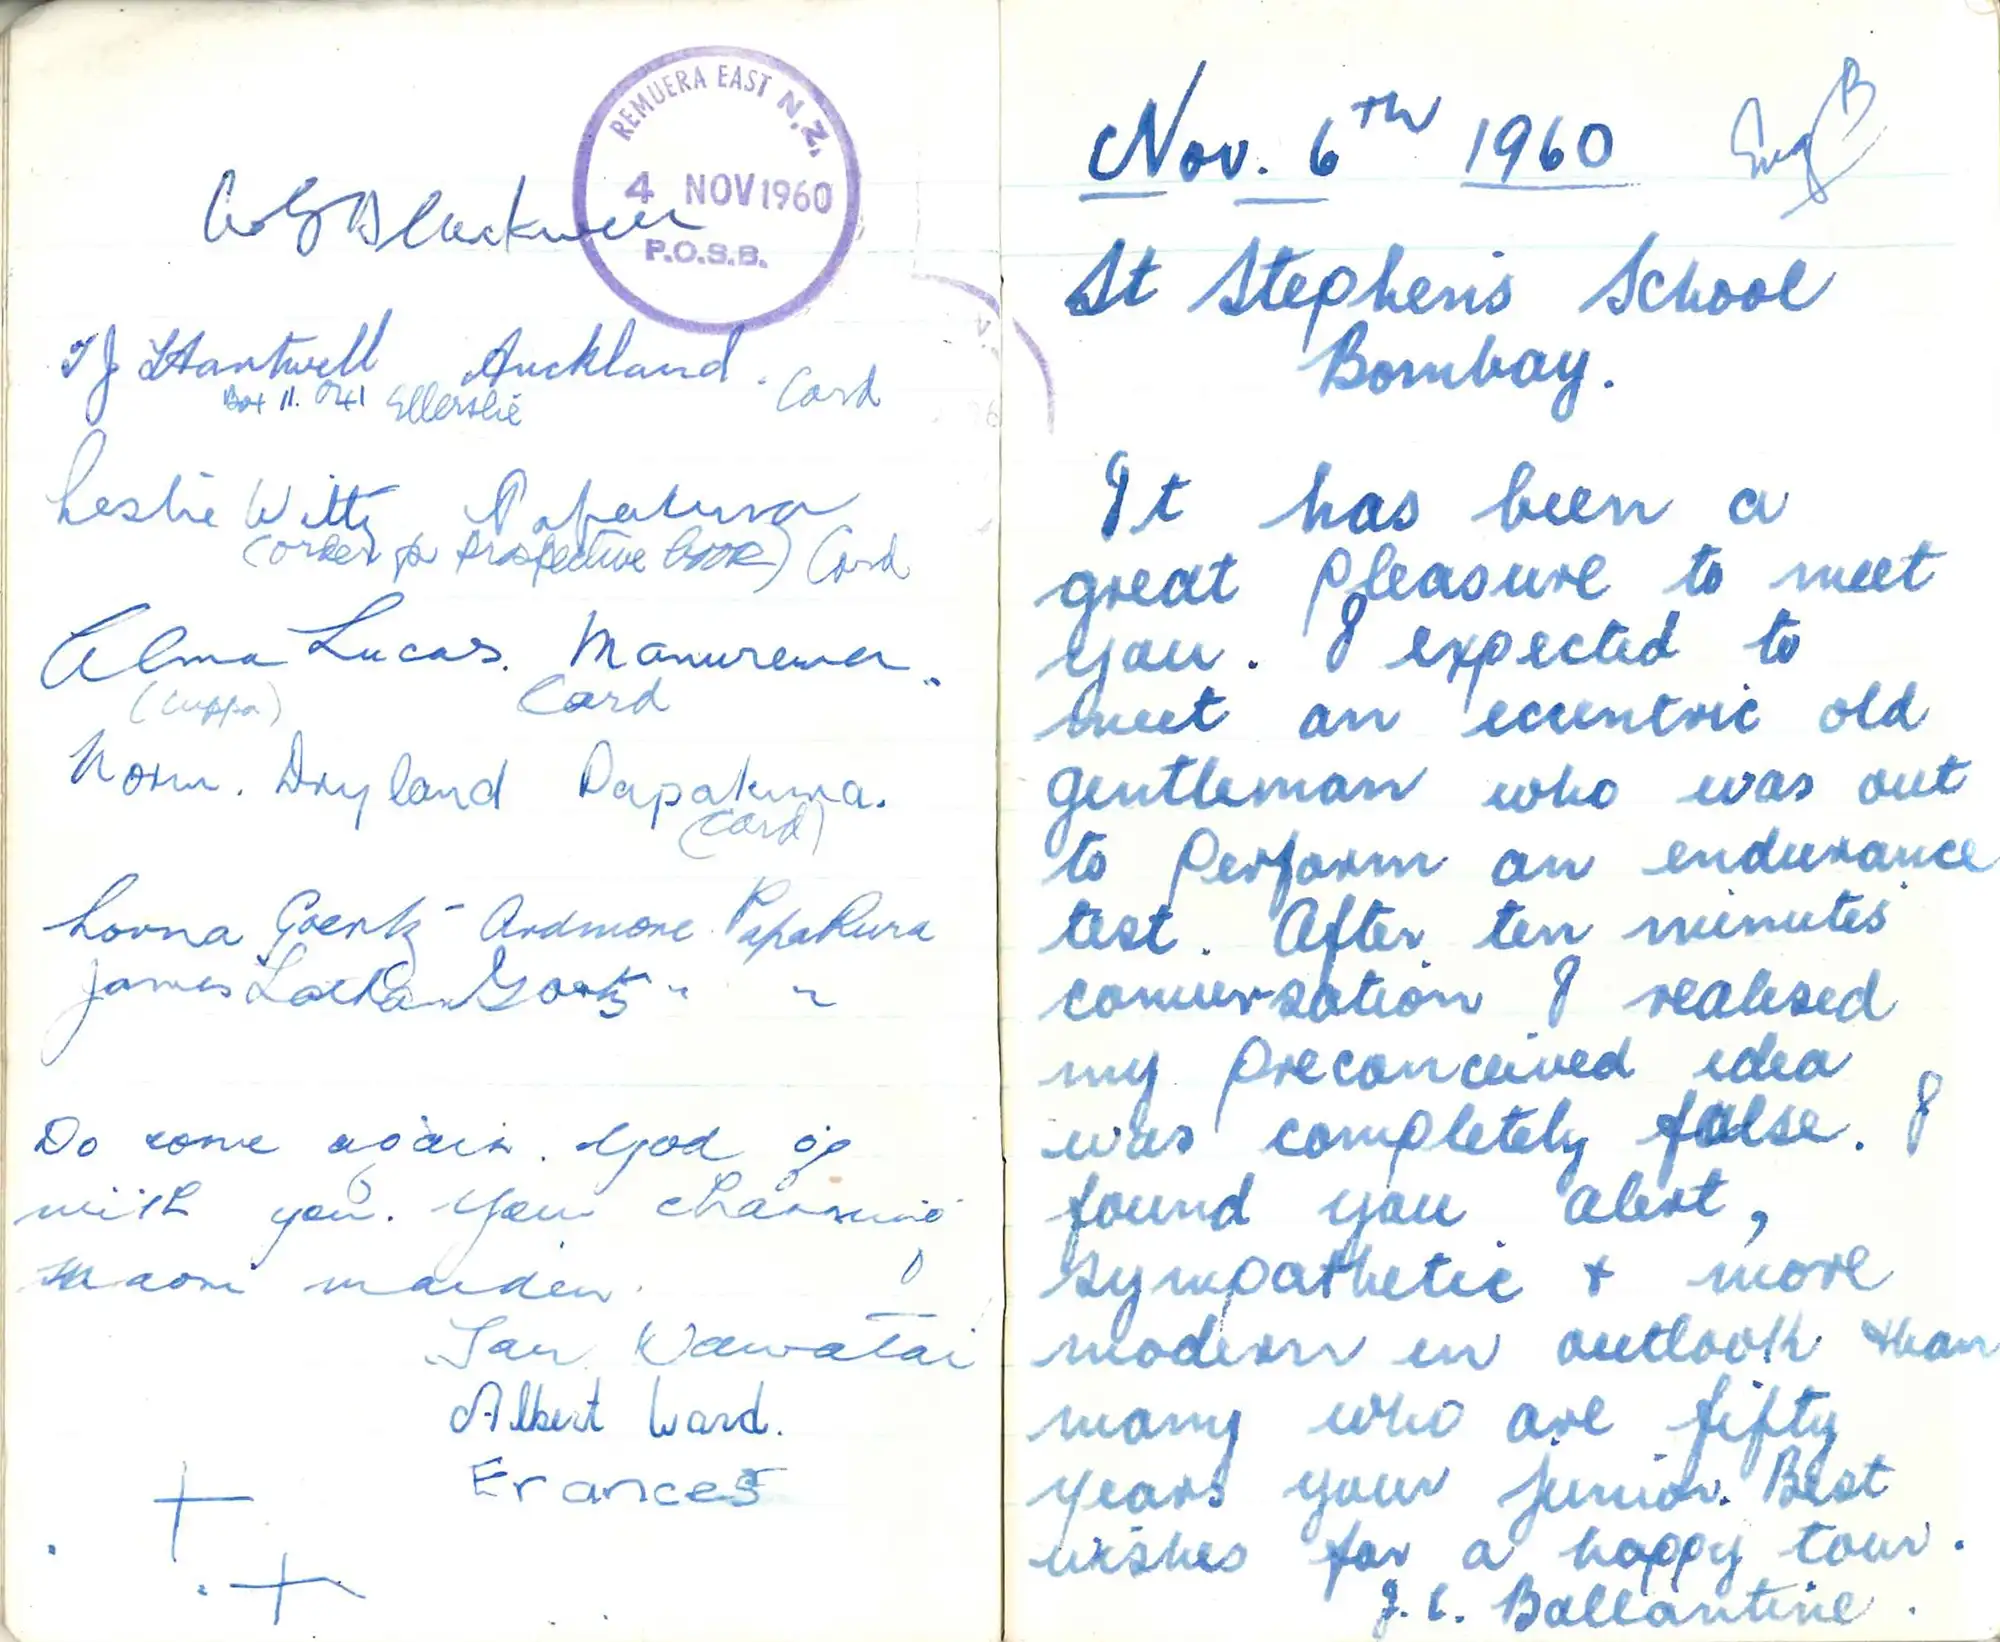 REMUERA EAST N.Z.
4 NOV 1960
P.O.S.B.
Blackwell
T J Hartwell Auckland. Card
Box 11. 041 Ellerslie
Leslie Witty Papakura
(order for prospective book) Card
Alma Lucas. Manurewa.
(Cuppa) Card
Norm. Dryland Papakura.
(Card)
Lorna Goertz - Ardmore Papakura
James " "
Do come again. God go
with you. Your charming
Maori maiden.
Wawatai
Albert Ward.
Frances
Nov. 6TH 1960
St Stephen's School
Bombay.
It has been a
great pleasure to meet
you. I expected to
meet an eccentric old
gentleman who was out
to perform an endurance
test. After ten minutes'
conversation I realised
my preconceived idea
was completely false. I
found you alert,
sympathetic + more
modern in outlook than
many who are fifty
years your junior. Best
wishes for a happy tour.
J. C. Ballantine.